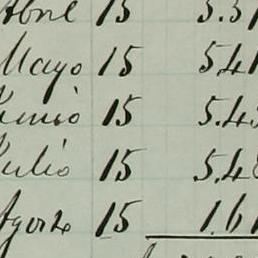 Abril 15 5.31
Mayo 15 5.41
Junio 15 5.45
Julio 15 5.48
Agosto 15 1.61